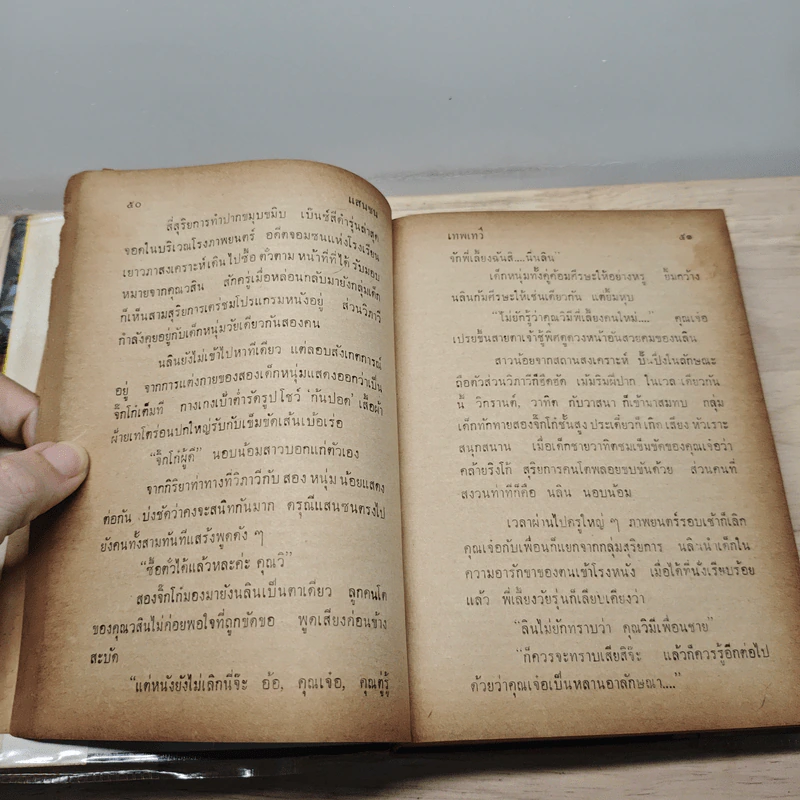 ๕๐ แสนซน
สี่สุริยการทำปากขมุบขมิบ เบ๊นซ์สีดำรุ่นล่าสุด
จอดในบริเวณโรงภาพยนตร์ อดีตจอมซนแห่งโรงเรียน
เยาวภาสงเคราะห์เดินไปซื้อตั๋วตาม หน้าที่ที่ได้รับมอบ
หมายจากคุณวสิน สักครู่เมื่อหล่อนกลับมายังกลุ่มเด็ก
ก็เห็นสามสุริยการเตร่ชมโปรแกรมหนังอยู่ ส่วนวิภาวี
กำลังคุยอยู่กับเด็กหนุ่มวัยเดียวกันสองคน
นลินยังไม่เข้าไปหาทีเดียว แต่ลอบสังเกตการณ์
อยู่ จากการแต่งกายของสองเด็กหนุ่มแสดงออกว่าเป็น
จิ๊กโก๋เต็มที่ กางเกงเป้าต่ำรัดรูปโชว์ 'ก้นปอด' เสื้อผ้า
ฝ้ายเทโตร่อนปกใหญ่รับกับเข็มขัดเส้นเบ้อเร่อ
“จิ๊กโก๋ผู้ดี” นอบน้อมสาวบอกแก่ตัวเอง
จากกิริยาท่าทางที่วิภาวีกับ สอง หนุ่ม น้อยแสดง
ต่อกัน บ่งชัดว่าคงจะสนิทกันมาก ดรุณีแสนซนตรงไป
ยังคนทั้งสามทันทีแสร้งพูดดัง ๆ
“ซื้อตั๋วได้แล้วหละค่ะ คุณวิ”
สองจิ๊กโก๋มองมายังนลินเป็นตาเดียว ลูกคนโต
ของคุณวสินไม่ค่อยพอใจที่ถูกขัดขอ พูดเสียงค่อนข้าง
สะบัด
“แต่หนังยังไม่เลิกนี่จ๊ะ อ้อ, คุณเจ๋อ, คุณตู่รู้
เทพเทวี ๕๑
จักพี่เลี้ยงฉันสิ....นี่นลิน”
เด็กหนุ่มทั้งคู่ค้อมศีรษะให้อย่างหรู ยิ้มกว้าง
นลินก้มศีรษะให้เช่นเดียวกัน แต่ยิ้มหุบ
“ไม่ยักรู้ว่าคุณวิมีพี่เลี้ยงคนใหม่....” คุณเจ๋อ
เปรยขึ้นสายตาเจ้าชู้พิศดูดวงหน้าอันสวยคมของนลิน
สาวน้อยจากสถานสงเคราะห์ ปั้นปึ่งในลักษณะ
ถือตัวส่วนวิภาวีก็อึดอัด เม้มริมฝีปาก ในเวลาเดียวกัน
นี้ วิทรานต์, วาทิต กับวาสนา ก็เข้ามาสมทบ กลุ่ม
เด็กทักทายสองจิ๊กโก๋ชั้นสูง ประเดี๋ยวก็เกิด เสียง หัวเราะ
สนุกสนาน เมื่อเด็กชายวาทิตชมเข็มขัดของคุณเจ๋อว่า
คล้ายริงโก้ สุริยการคนโตพลอยขบขันด้วย ส่วนคนที่
สงวนท่าทีก็คือ นลิน นอบน้อม
เวลาผ่านไปครู่ใหญ่ ๆ ภาพยนตร์รอบเช้าก็เลิก
คุณเจ๋อกับเพื่อนก็แยกจากกลุ่มสุริยการ นลินนำเด็กใน
ความอารักขาของตนเข้าโรงหนัง เมื่อได้ที่นั่งเรียบร้อย
แล้ว พี่เลี้ยงวัยรุ่นก็เลียบเคียงว่า
“ลินไม่ยักทราบว่า คุณวิมีเพื่อนชาย”
“ก็ควรจะทราบเสียสิจ๊ะ แล้วก็ควรรู้อีกต่อไป
ด้วยว่าคุณเจ๋อเป็นหลานอาลักษณา....”